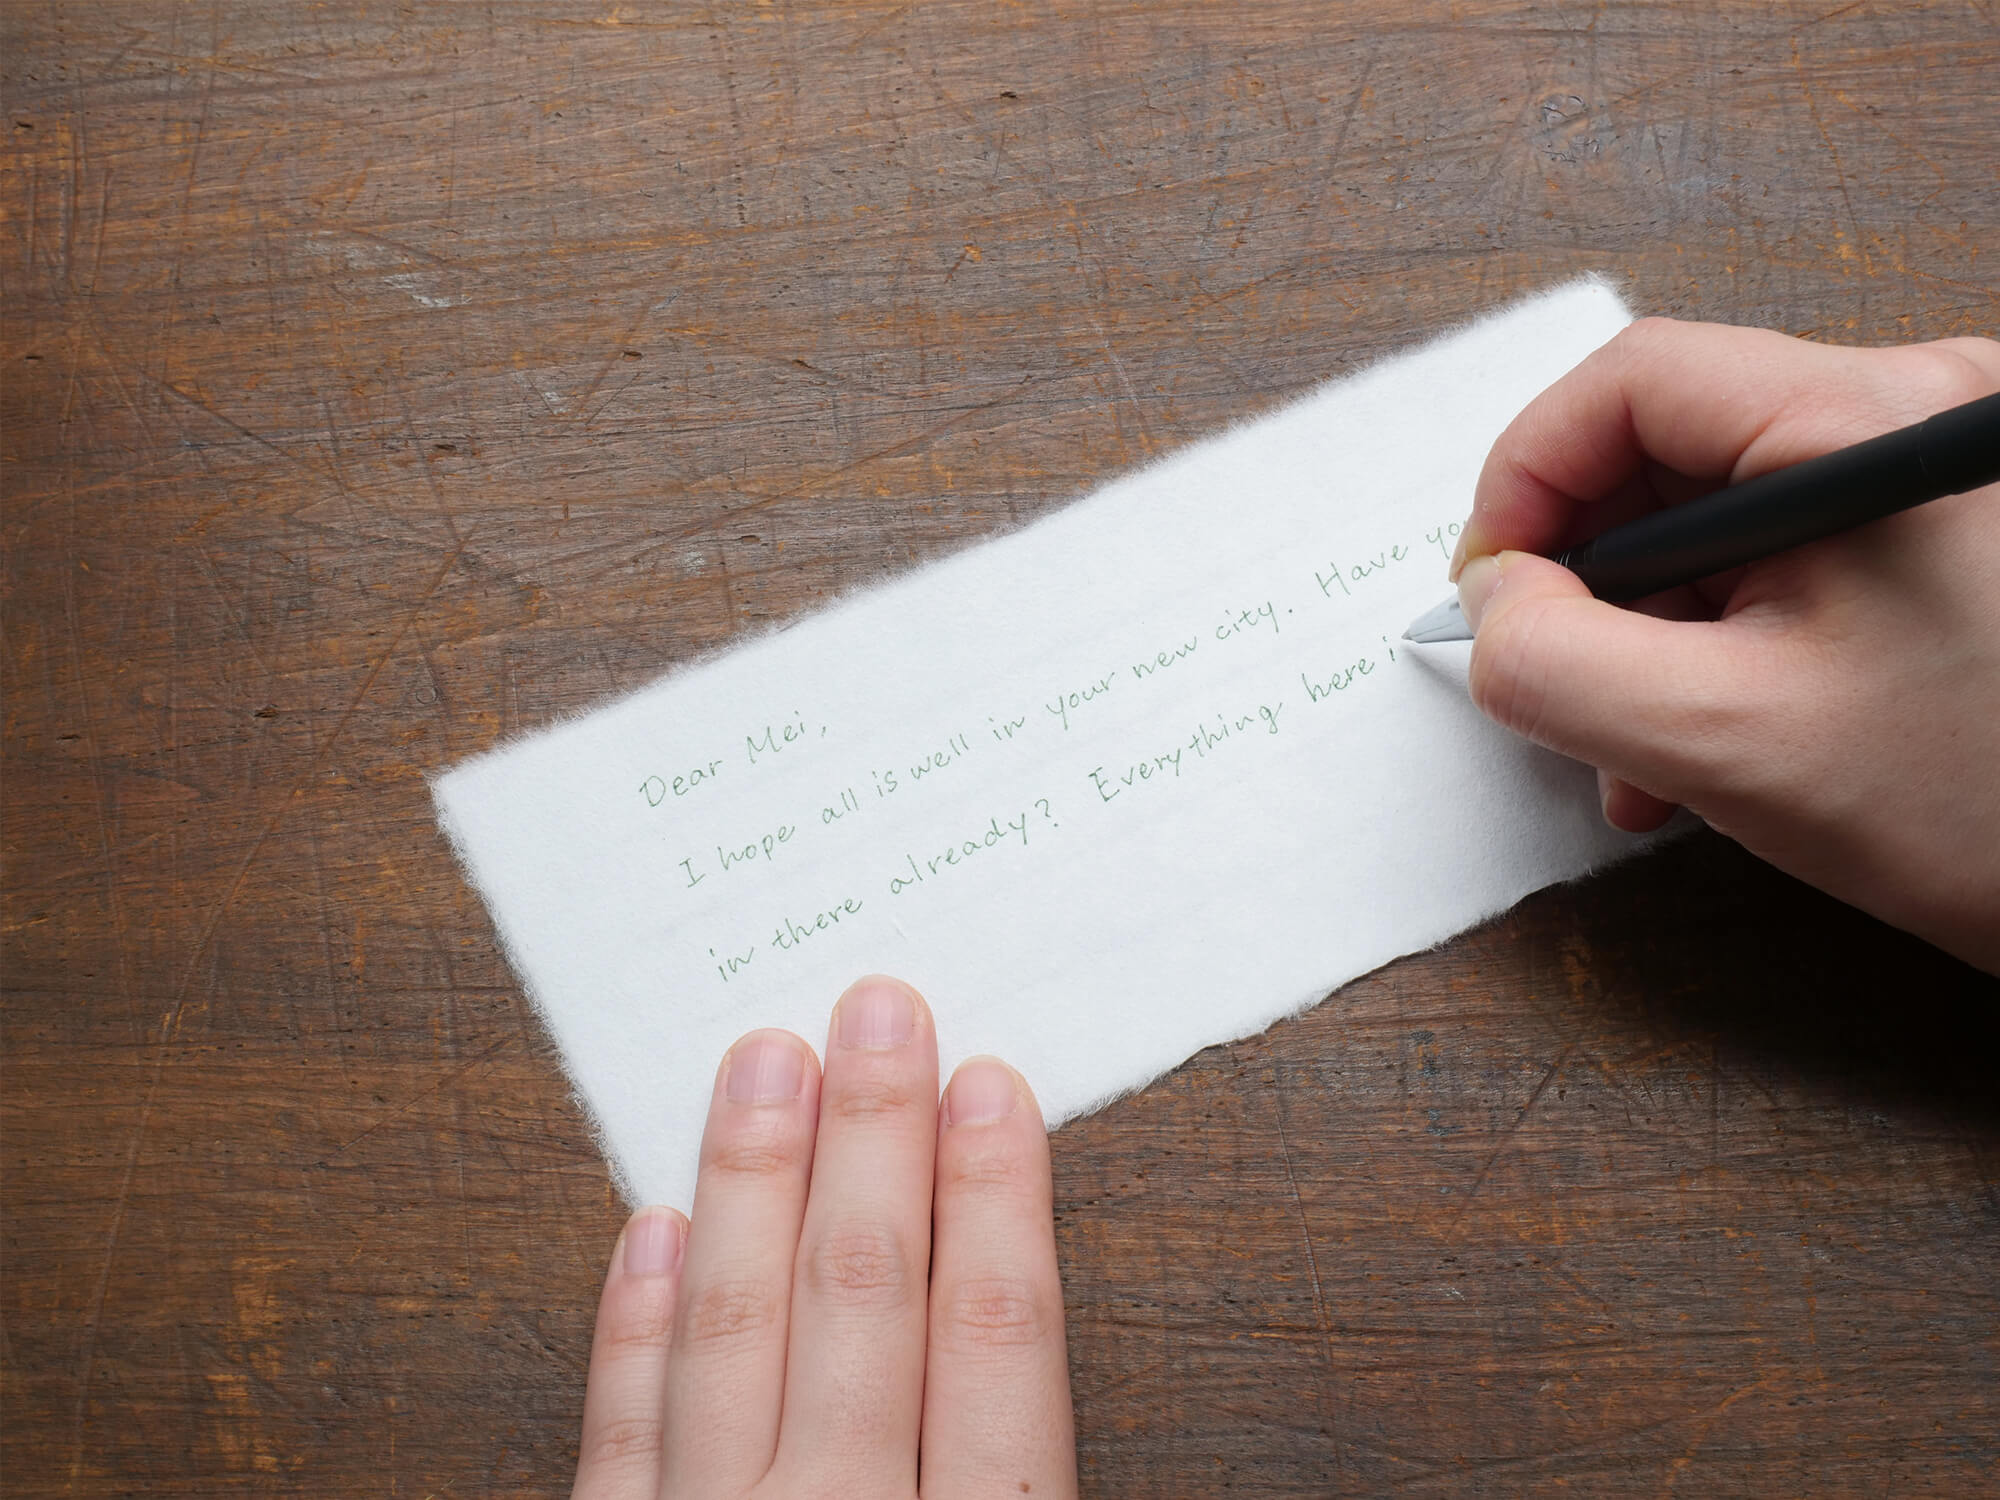 Dear Mei,
I hope all is well in your new city. Have yo
in there already? Everything here i